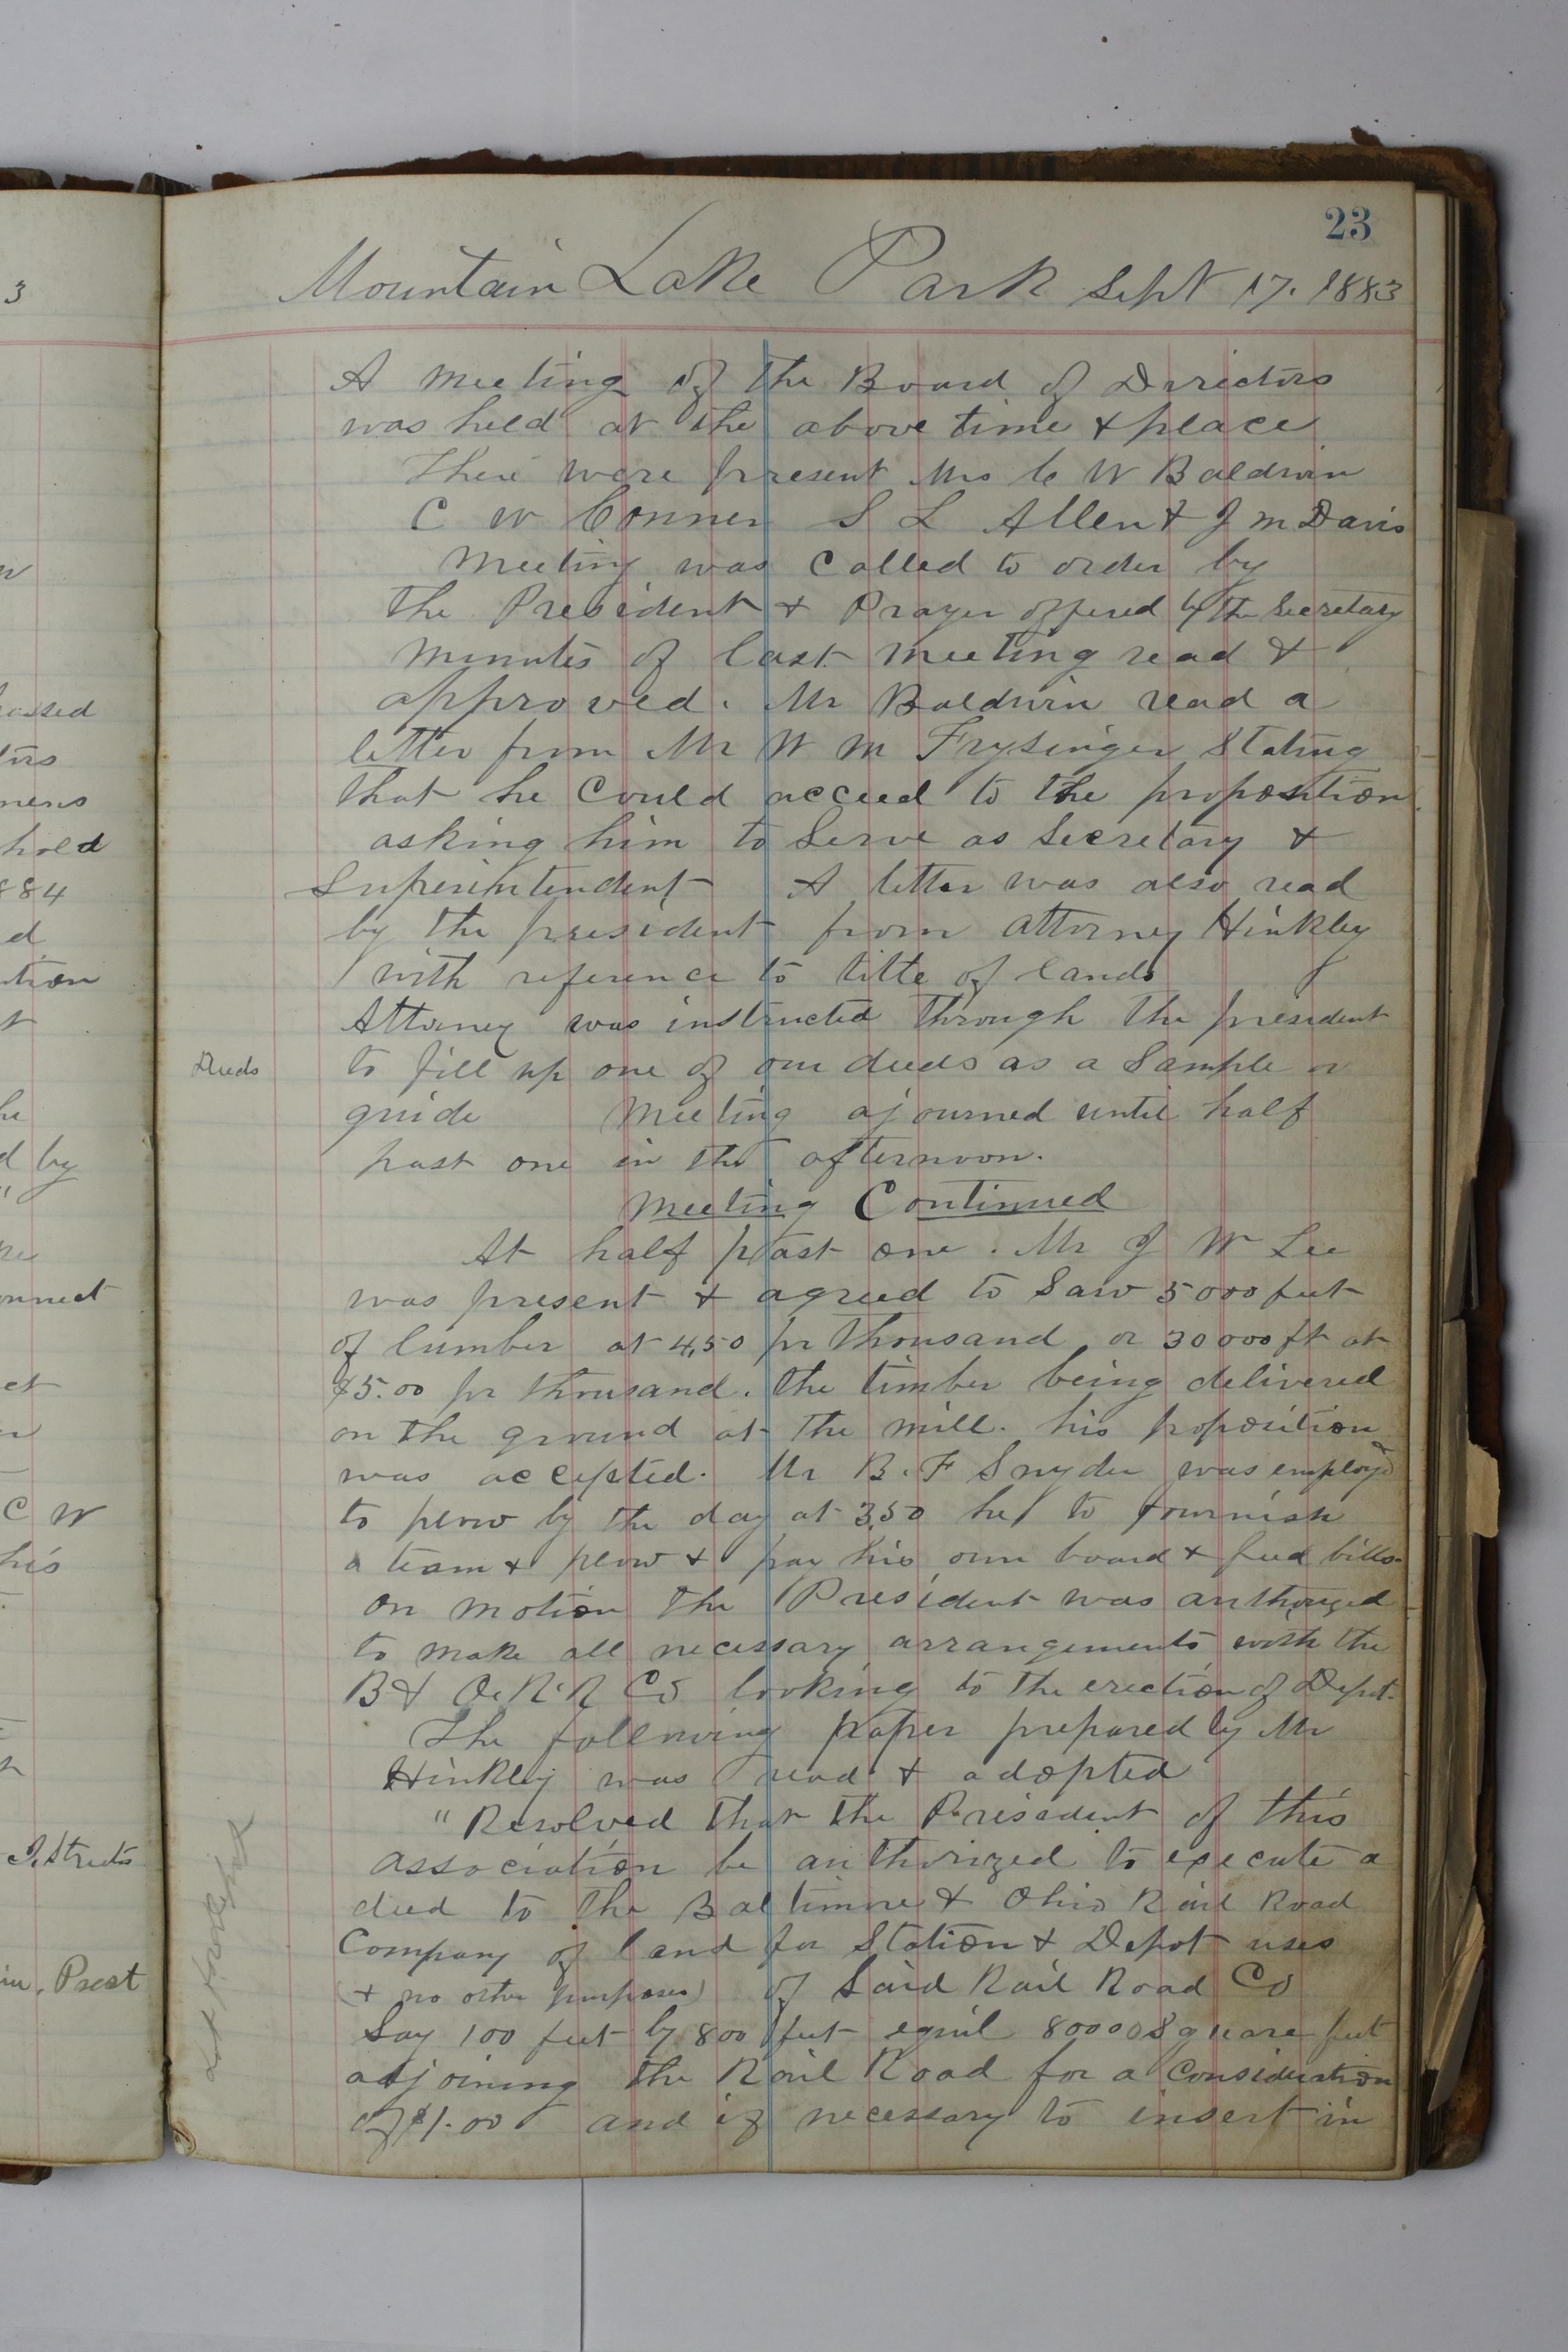 3
w
passed
tors
mens
hold
884
ed
ution
t
he
d by
"
he
onnect
et
C W
his
J. Streets
in, Prest
23
Mountain Lake Park Sept 17. 1883
A meeting of the Board of Directors
was held at the above time & place
There were present Mrs C W Baldwin
C W Conner S L Allen & J M Davis
Meeting was called to order by
the President & Prayer offered by the Secretary
Minutes of last meeting read &
approved. Mr Baldwin read a
letter from Mr W M Frysinger Stating
that he Could acceed to the proposition
asking him to Serve as Secretary &
Superintendent A letter was also read
by the president from Attorney Hinkley
with reference to title of lands
Attorney was instructed through the president
Deeds
to fill up one of our deeds as a Sample or
guide Meeting ajourned until half
past one in the afternoon.
Meeting Continued
At half past one. Mr J W Lee
was present & agreed to Saw 5000 feet
of lumber at 4,50 pr thousand or 30000 ft at
$5.00 pr thousand. the timber being delivered
on the ground at the mill. his proposition
was accepted. Mr B. F Snyder was employd
to plow by the day at 3,50 he to fournish
a team & plow & pay his own board & feed bills.
on motion the President was authorized
to make all necessary arrangements with the
B & O. R. R Co looking to the erection of Depot.
The following paper prepared by Mr
Hinkley was read & adopted
"Resolved that the President of this
association be authorized to execute a
deed to the Baltimore & Ohio Rail Road
Company of land for Station & Depot uses
(& no other purposes) of Said Rail Road Co
Say 100 feet by 800 feet equil 80000 Square feet
adjoining the Rail Road for a Consideration
of $1.00 and if necessary to insert in